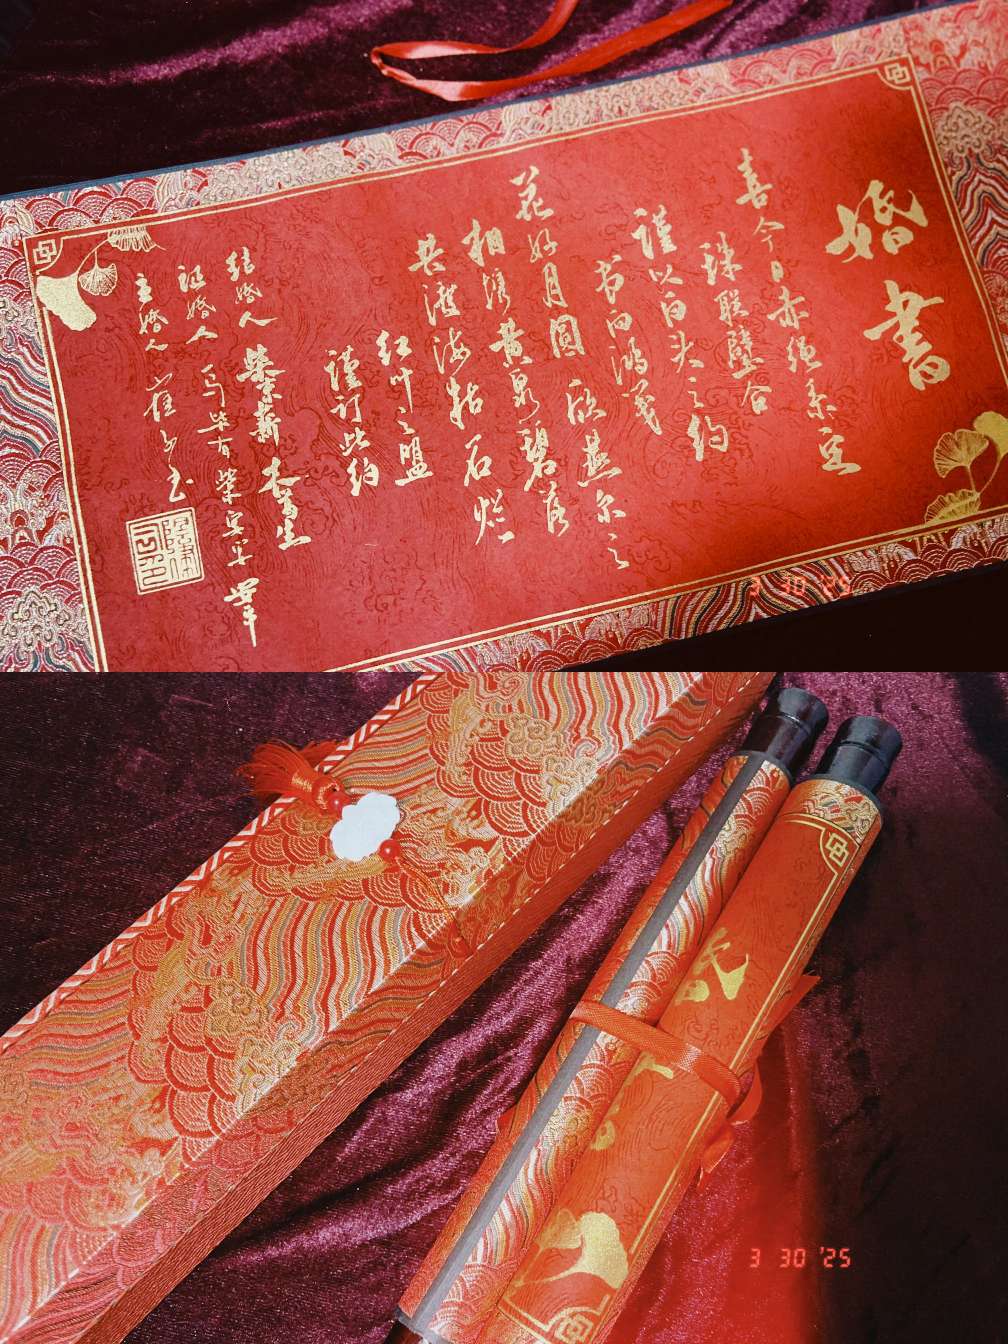 婚書
喜今日赤绳系定
珠联璧合
谨以白头之约
书向鸿笺
花好月圆 欣燕尔之
相携黄泉碧落
共渡海枯石烂
红叶之盟
谨订此约
结婚人 柴薪
证婚人
主婚人 崔
3 30 '25
3 30 '25